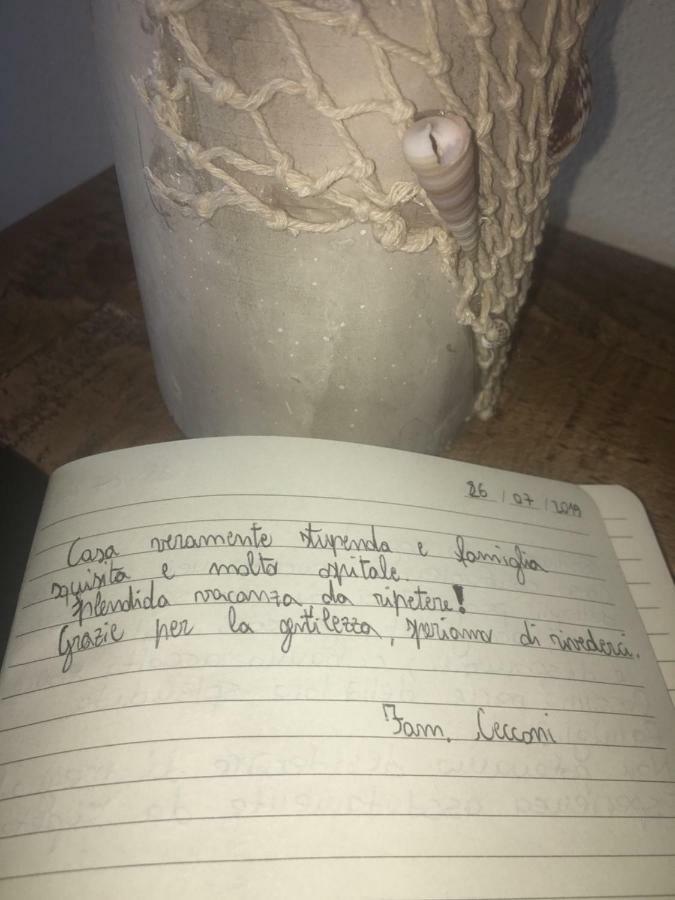 26/07/2019
Casa veramente stupenda e famiglia
squisita e molto ospitale.
Splendida vacanza da ripetere!
Grazie per la gentilezza, speriamo di rivederci.
Fam. Cecconi